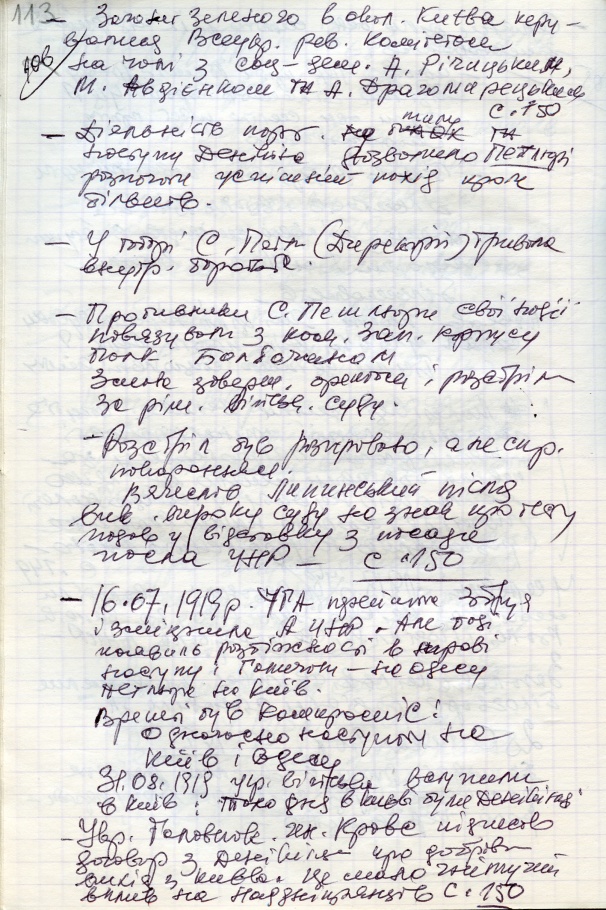 113 – Загони Зеленого в окол. Києва керу-
валися Всеукр. рев. комітетом
дов на чолі з соц-дем. А. Річицьким,
М. Авдієнком та А. Драгомирецьким
с. 150
– Діяльність та
наступ Денікіна дозволило Петлюрі
розпочати успішний похід проти
більшов.
– У таборі С. Петл. (Директорії) тривала
внутр. боротьба.
– Противники С. Петлюри свої надії
пов'язували з ком. Зап. корпусу
полк Болбочаном
Змова заверш. арештом і розстріл
за ріш. військ. суду.
– Розстріл був розправою, а не спр.
покаранням.
Вячеслав Липинський після
вик. вироку суду на знак протесту
подав у відставку з посади
посла УНР – с. 150
– 16.07.1919 р. УГА перейшла Збруч
і зміцнила А УНР. Але тоді
розбіжності в
наступу: Галичани – на Одесу
Петлюра на Київ.
Врешті був компроміс:
одночасно наступати на
Київ і Одесу
31.08.1919 укр. війська вступили
в Київ; того дня в Києві були Денікінці
– Укр. Головноком. ген. Кравс підписав
договір з Денікіним про добров.
вихід з Києва. Це мало гнітючий
вплив на наддніпрянців с. 150